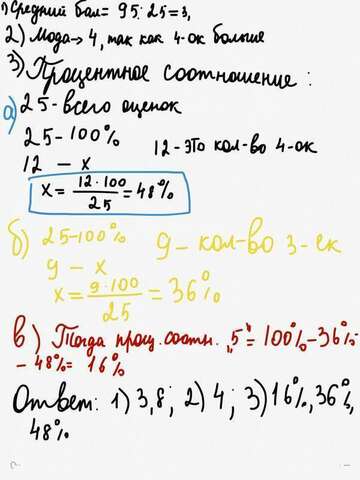 1) Средний бал= 95:25=3,
2) Мода→4, так как 4-ок больше
3) Процентное соотношение:
а) 25-всего оценок
25-100%
12-это кол-во 4-ок
12 - x
x= 12·100/25 =48%
б) 25-100%
9- кол-во 3-ек
9 - x
x= 9·100/25 =36%
в) Тогда проц. соотн. "5"=100%-36%-
- 48%= 16%
Ответ: 1)3,8; 2)4; 3)16%,36%,
48%